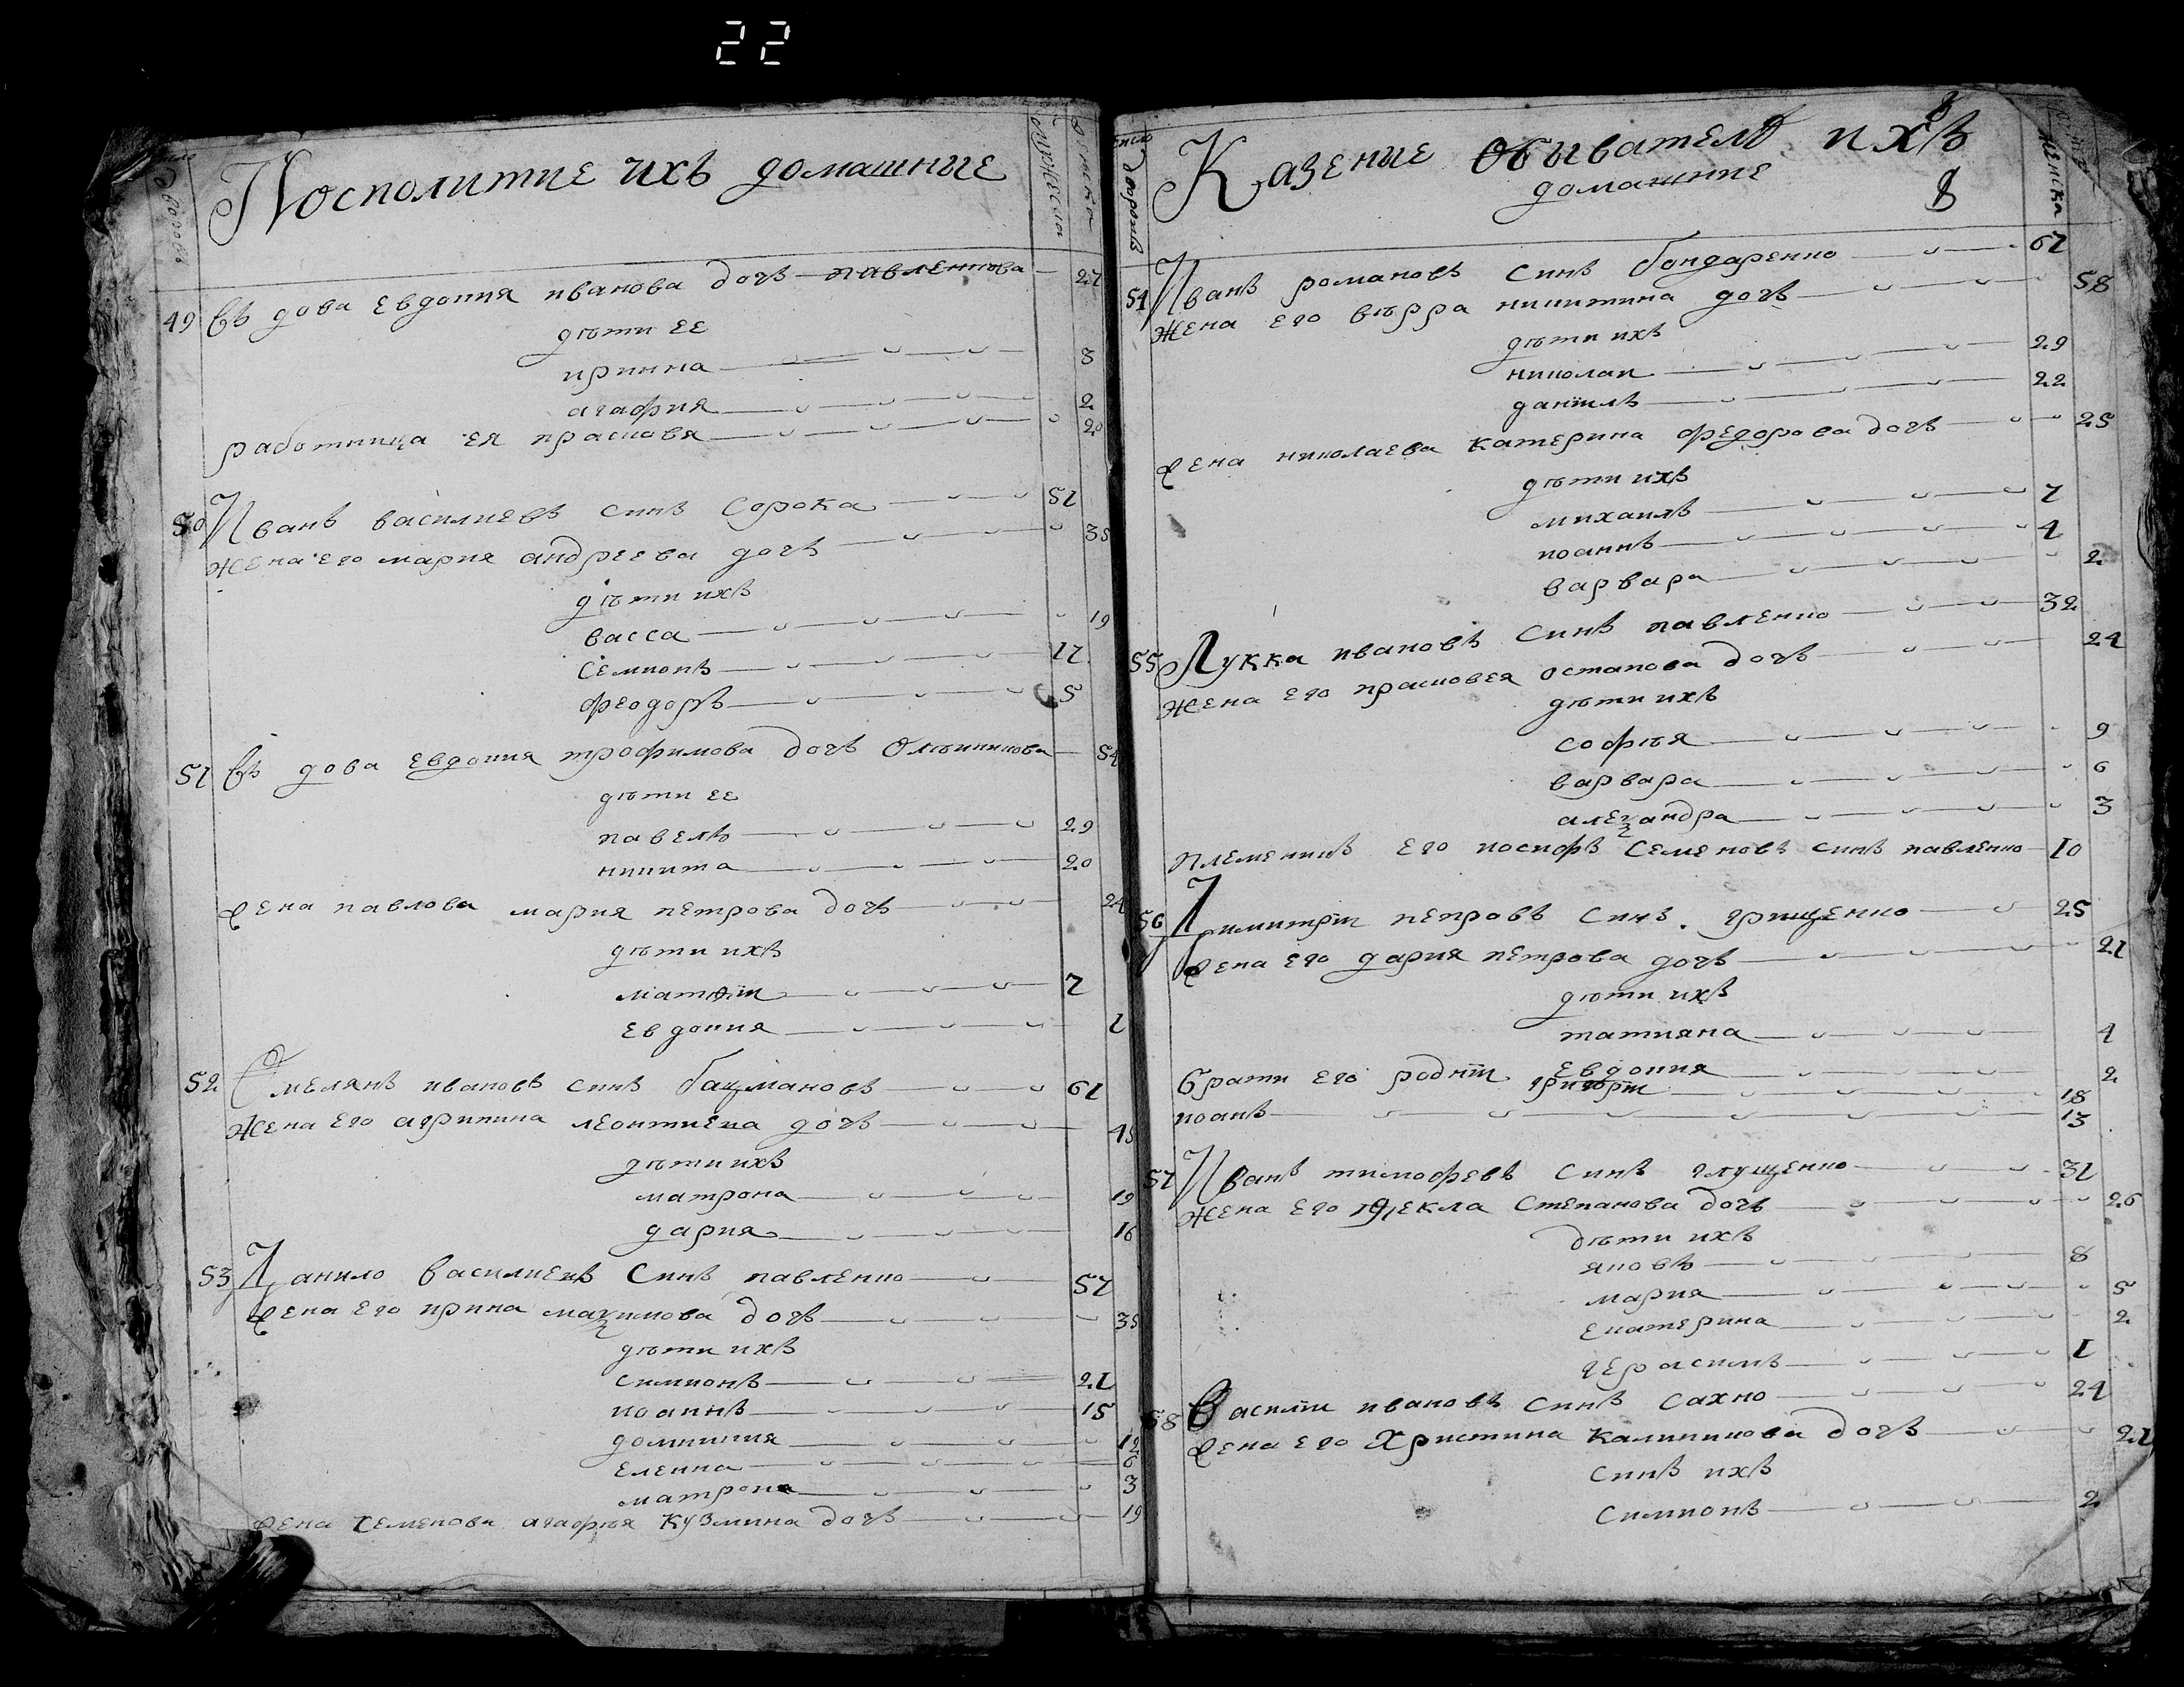 22
Посполитие ихъ домашние
мужеска
женска
дворовъ
49 Въдова Евдокия иванова дочъ павленкова 27
дѣти ее
иринна 8
агафия 2
работница ея прасковя 20
50 Иванъ василиевъ синъ Сорока 51
Жена его мария андреева дочъ 35
дѣти ихъ
васса 19
Семионъ 17
феодоръ 5
51 Въдова Евдокия трофимова дочъ Олѣйникова 54
дѣти ее
павелъ 29
никита 20
Жена павлова мария петрова дочъ 24
дѣти ихъ
матѳїй 7
евдокия 1
52 Омелянъ ивановъ синъ бацмановъ 61
Жена его агрипина леонтиева дочъ 45
дѣти ихъ
матрона 19
дария 16
53 Данило василиевъ Синъ павленко 57
Жена его ирина маѯимова дочъ 35
дѣти ихъ
симионъ 21
иоаннъ 15
домникия 12
еленна 6
матрона 3
Жена семенова агафѣя кузмина дочъ 19
число дворовъ
Казение обивателѣ ихъ
домашние
8
8
женска
54 Иванъ романовъ Синъ бондаренко 61
Жена его вѣрра никитина дочъ 58
дѣти ихъ
николаи 29
данїилъ 22
Жена николаева катерина федорова дочъ 25
дѣти ихъ
михаилъ 7
иоаннъ 4
варвара 2
55 Лукка ивановъ Синъ павленко 32
Жена его прасковея остапова дочъ 24
дѣти ихъ
софѣя 9
варвара 6
алеѯандра 3
Племенникъ его иосифъ Семеновъ синъ павленко 10
56 Димитрїй петровъ Синъ грищенко 25
Жена его дария петрова дочъ 21
дѣти ихъ
татияна 4
Евдокия 2
Брати его роднїи григорїй 18
иоанъ 13
57 Иванъ тимофеевъ Синъ глущенко 31
Жена его ѳекла Степанова дочъ 26
дѣти ихъ
яковъ 8
мария 5
екатерина 2
герасимъ 1
58 Василїй ивановъ Синъ Сахно 24
Жена его Христина калиникова дочъ 21
Синъ ихъ
Симионъ 2